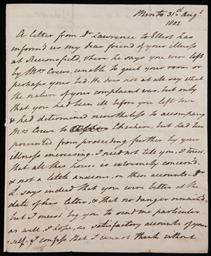 Minto 31st Augt
1802
A letter from Dr Lawrence to Elliot has
informed us my dear friend of your illness
at Beconsfield, where he says you were left
by Mrs Crewe, unable to quit your room or
perhaps your bed. He does not at all say what
the nature of your complaint was, but only
that you had been ill before you left town
& had determined nevertheless to accompany
Mrs Crewe to Cheltenm, but had been
prevented from proceeding further by your
illness increasing. I need not tell you, I trust,
that all this house is extremely concern'd,
& not a little anxious, on these accounts. Dr
L. says indeed that you were better at the
date of his letter, & that no danger remain'd,
but I must beg you to send me particular
as well, I hope, as satisfactory accounts of your
self. I confess that I cannot think without